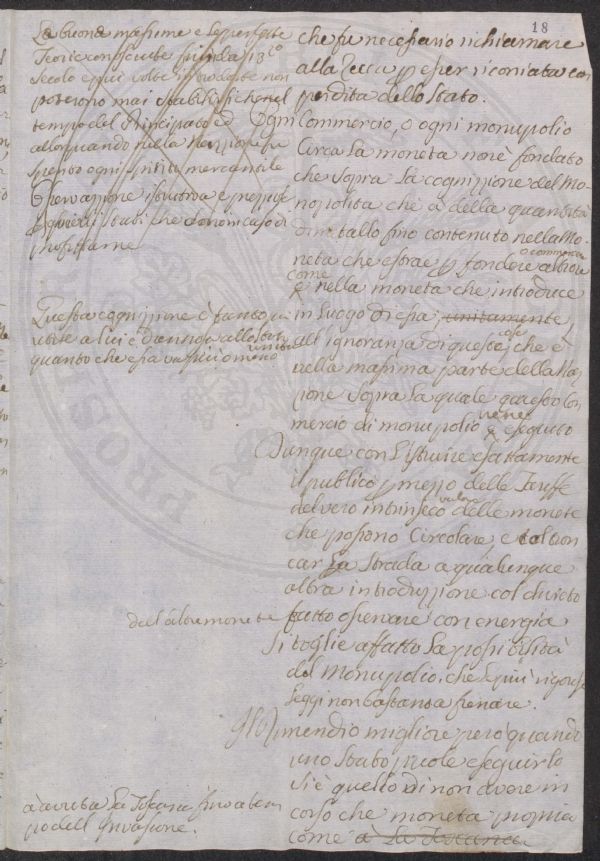 18
La buona massime e le perfette
Teorie conosciute fin dal 13.º
Secolo e più volte introdotte non
poterono mai stabilirsi che nel
tempo del Principato ed
allorquando nella nazione fu
spento ogni spirito mercantile
Osservazione istruttiva e preziosa
per quegli Stati che sono in caso di
profittarne
che fu necessario richiamare
alla Zecca p esser riconiata con
perdita dello Stato.
Ogni Commercio, o ogni monupolio
circa la moneta non è fondato
che sopra la cognizione del Mo-
nopolista che à della quantità
di metallo fino contenuto nella Mo-
neta che estrae p fondere o commerciare altrove
come è nella moneta che introduce
in luogo di essa, unitamente
all ignoranza di queste cose, che è
nella massima parte della Na-
zione sopra la quale questo Com
mercio di monupolio viene è eseguito
Questa cognizione è tanto più
utile a lui e dannosa allo stato
quanto che essa va più o meno unita
Dunque con l'istruire esattamente
il publico p mezzo delle Tariffe
del vero intrinseco valore delle monete
che possono Circolare, e col troncar
la strada a qualunque
altra introduzione col divieto
dell'altre monete fatto osservare con energia
si toglie affatto la possibilità
del Monupolio, che le più rigorose
leggi non bastano a frenare.
Il Rimendio migliore però quando
uno Stato puole eseguirlo
si è quello di non avere in
corso che moneta propria
come à La Toscana
à avuta la Toscana fino a tem
po dell'Invasione.
PROSIT